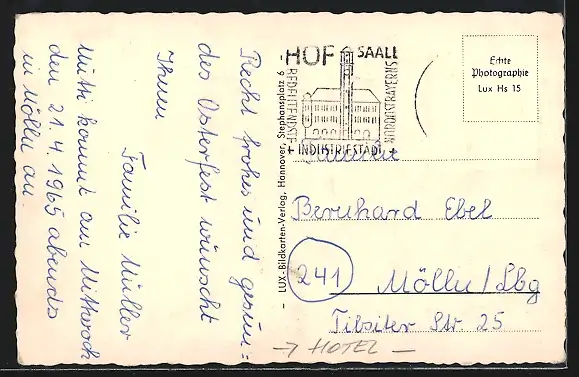 Recht frohes und gesun=
des Osterfest wünscht
Ihnen
Familie Müller
Mutti kommt am Mittwoch
den 21.4.1965 abends
in Mölln an.
- LUX-Bildkarten-Verlag, Hannover, Stephansplatz 6 -
HOF SAALE
BEDEUTENDSTE
INDUSTRIESTADT
NORDOSTBAYERNS
Echte
Photographie
Lux Hs 15
Familie
Bernhard Ebel
241 Mölln/Lbg
Tilsiter Str. 25
→ HOTEL -